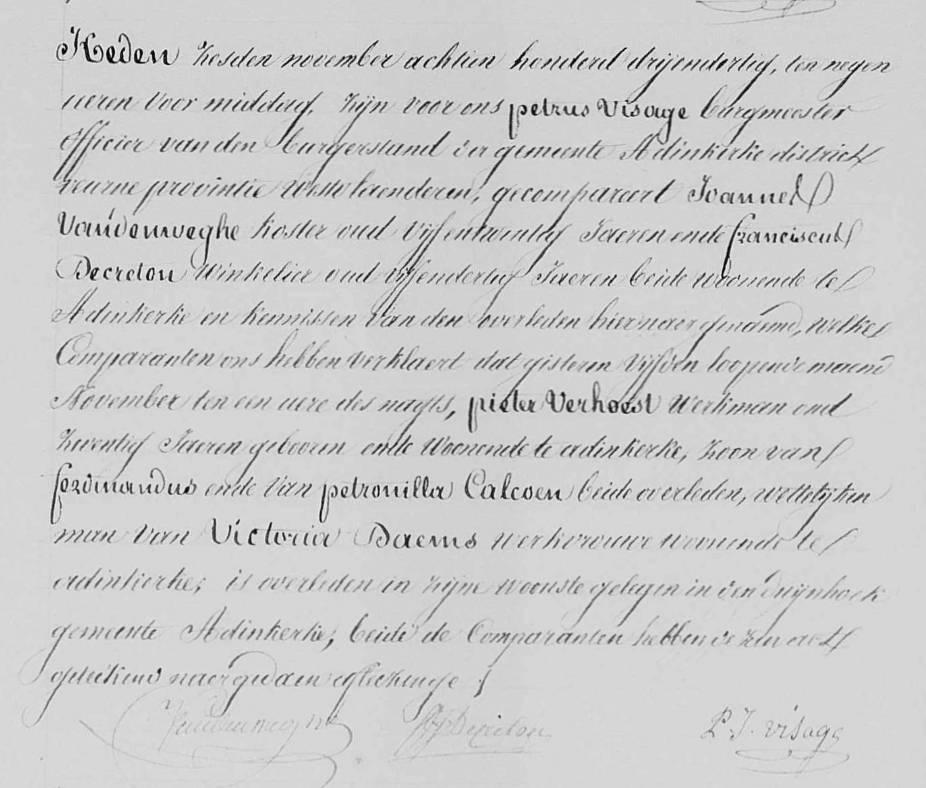 Heden Zesden november achtien honderd drijendertig, ten negen
ueren voor middag, Zijn voor ons petrus Visage burgmeester
officier van den burgerstand der gemeente Adinkerke district
veurne provintie westvlaenderen, gecompareert Joannes
Vandenweghe Koster oud vijfentwintig Jaeren ende franciscus
Decreton Winkelier oud vijfendertig Jaeren beide woonende te
Adinkerke en kennissen van den overleden hier naer genaemd, welke
Comparanten ons hebben verklaert dat gisteren vijfden loopende maend
November ten een uere des nagts, pieter Verhoest Werkman oud
Zeventig Jaeren gebooren ende Woonende te adinkerke, Zoon van
ferdinandus ende van petronilla Calcoen beide overleden, wettelijken
man van Victoria Daems werkvrouwe woonende te
adinkerke; is overleden in zijne wooniste gelegen in den duijnhoek
gemeente Adinkerke, beide de Comparanten hebben dezen act
geteekend naer gedaen
Vandenweghe Decreton P. J. Visage